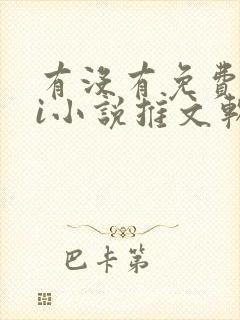 有没有免费
i小说推文軟
巴卡第